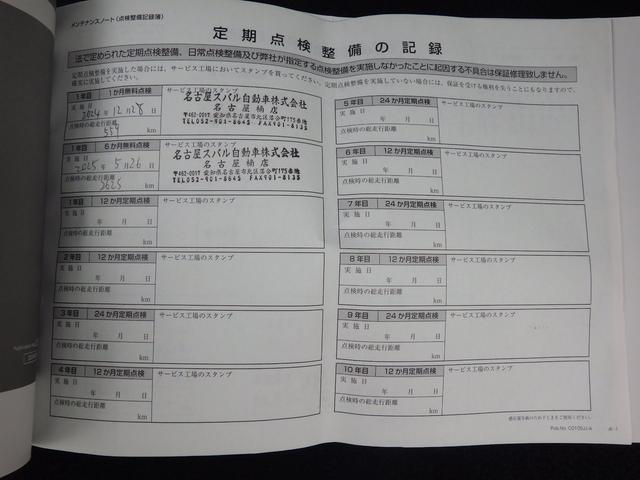 メンテナンスノート(点検整備記録簿)
定期点検整備の記録
法で定められた定期点検整備、日常点検整備及び弊社が指定する点検整備を実施しなかったことに起因する不具合は保証修理致しません。
定期点検整備を実施した場合には、サービス工場においてスタンプを貰ってください。定期点検整備を実施していない場合には、保証を受ける権利を失うことにもなりますので、
確実に実施してください。
1年目 1か月無料点検
サービス工場のスタンプ
実施日
2024年12月28日
点検時の総走行距離
559
km
名古屋スバル自動車株式会社
名古屋橘店
TEL052-901-8645 FAX901-8135
1年目 6か月無料点検
サービス工場のスタンプ
実施日
2025年5月26日
点検時の総走行距離
2625
km
名古屋スバル自動車株式会社
名古屋橘店
TEL052-901-8645 FAX901-8135
1年目 12か月定期点検
サービス工場のスタンプ
実施日
年 月 日
点検時の総走行距離
km
2年目 12か月定期点検
サービス工場のスタンプ
実施日
年 月 日
点検時の総走行距離
km
3年目 24か月定期点検
サービス工場のスタンプ
実施日
年 月 日
点検時の総走行距離
km
4年目 12か月定期点検
サービス工場のスタンプ
実施日
年 月 日
点検時の総走行距離
km
5年目 24か月定期点検
サービス工場のスタンプ
実施日
年 月 日
点検時の総走行距離
km
6年目 12か月定期点検
サービス工場のスタンプ
実施日
年 月 日
点検時の総走行距離
km
7年目 24か月定期点検
サービス工場のスタンプ
実施日
年 月 日
点検時の総走行距離
km
8年目 12か月定期点検
サービス工場のスタンプ
実施日
年 月 日
点検時の総走行距離
km
9年目 24か月定期点検
サービス工場のスタンプ
実施日
年 月 日
点検時の総走行距離
km
10年目 12か月定期点検
サービス工場のスタンプ
実施日
年 月 日
点検時の総走行距離
km
Pub.No. C0105JJ-A